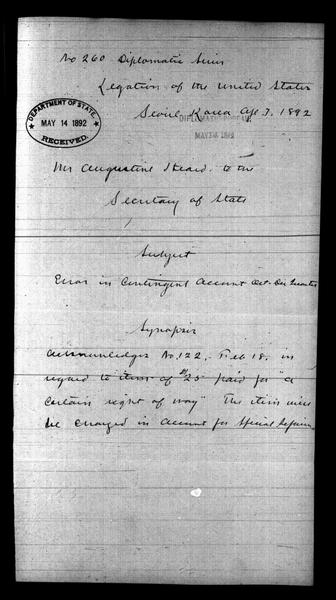 No 260 Diplomatic Series
Legation of the United States
Seoul Korea Apl 7, 1892
DEPARTMENT OF STATE,
MAY 14 1892
RECEIVED.
DIPLOMATIC BUREAU
MAY 1892
Mr Augustine Heard to the
Secretary of State
Subject
Error in Contingent Account Oct-Dec Quarter
Synopsis
Acknowledges No. 122, Feb 18, in
regard to item of $25 paid for "a
certain right of way" The item will
be charged in account for Special Repairs